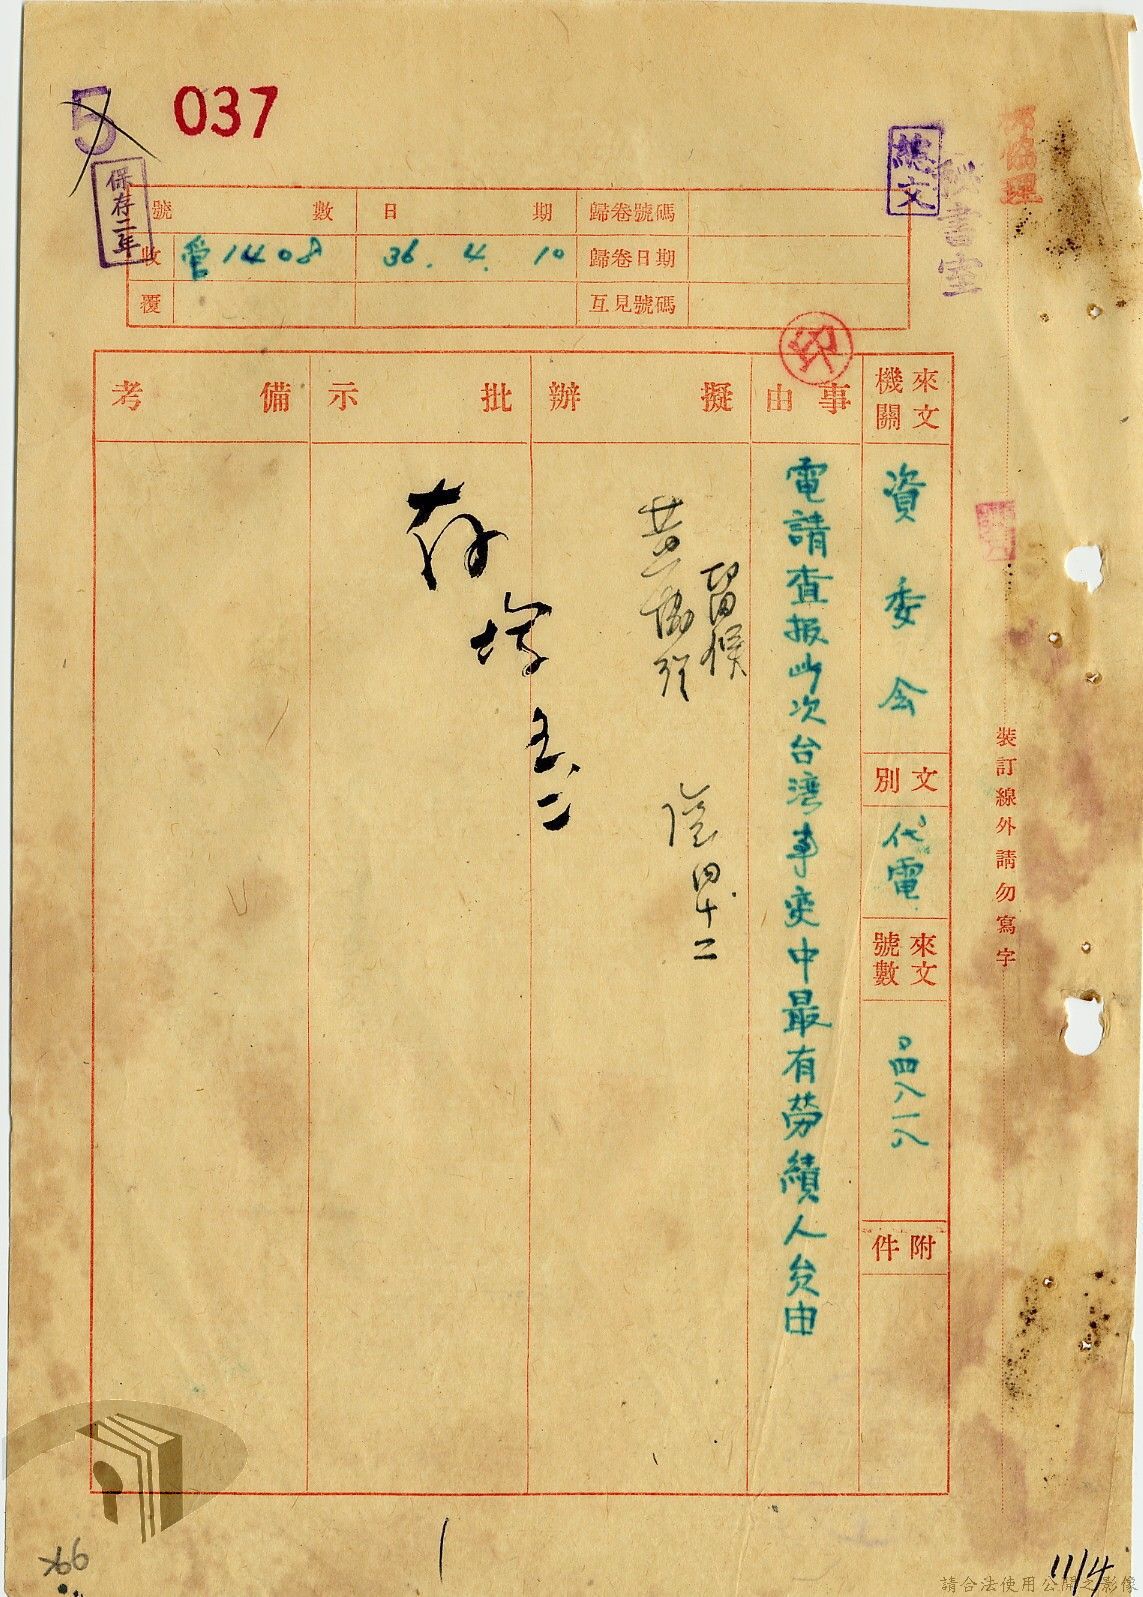 5
037
保存二年
總文
秘書室
協理
號數
日期
歸卷號碼
收
1408
36. 4. 10
歸卷日期
覆
互見號碼
來文機關
資委会
文別
代電
來文號數
附件
事由
電請查报此次台湾事变中最有劳績人员由
擬辦
留候
黃協理
四、十二
批示
存
五、二
備考
裝訂線外請勿寫字
11/4
請合法使用公開之影像